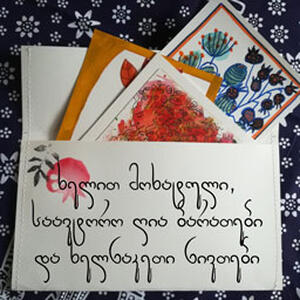 ხელით მოხატული,
საავტორო ღია ბარათები
და ხელნაკეთი ნივთები